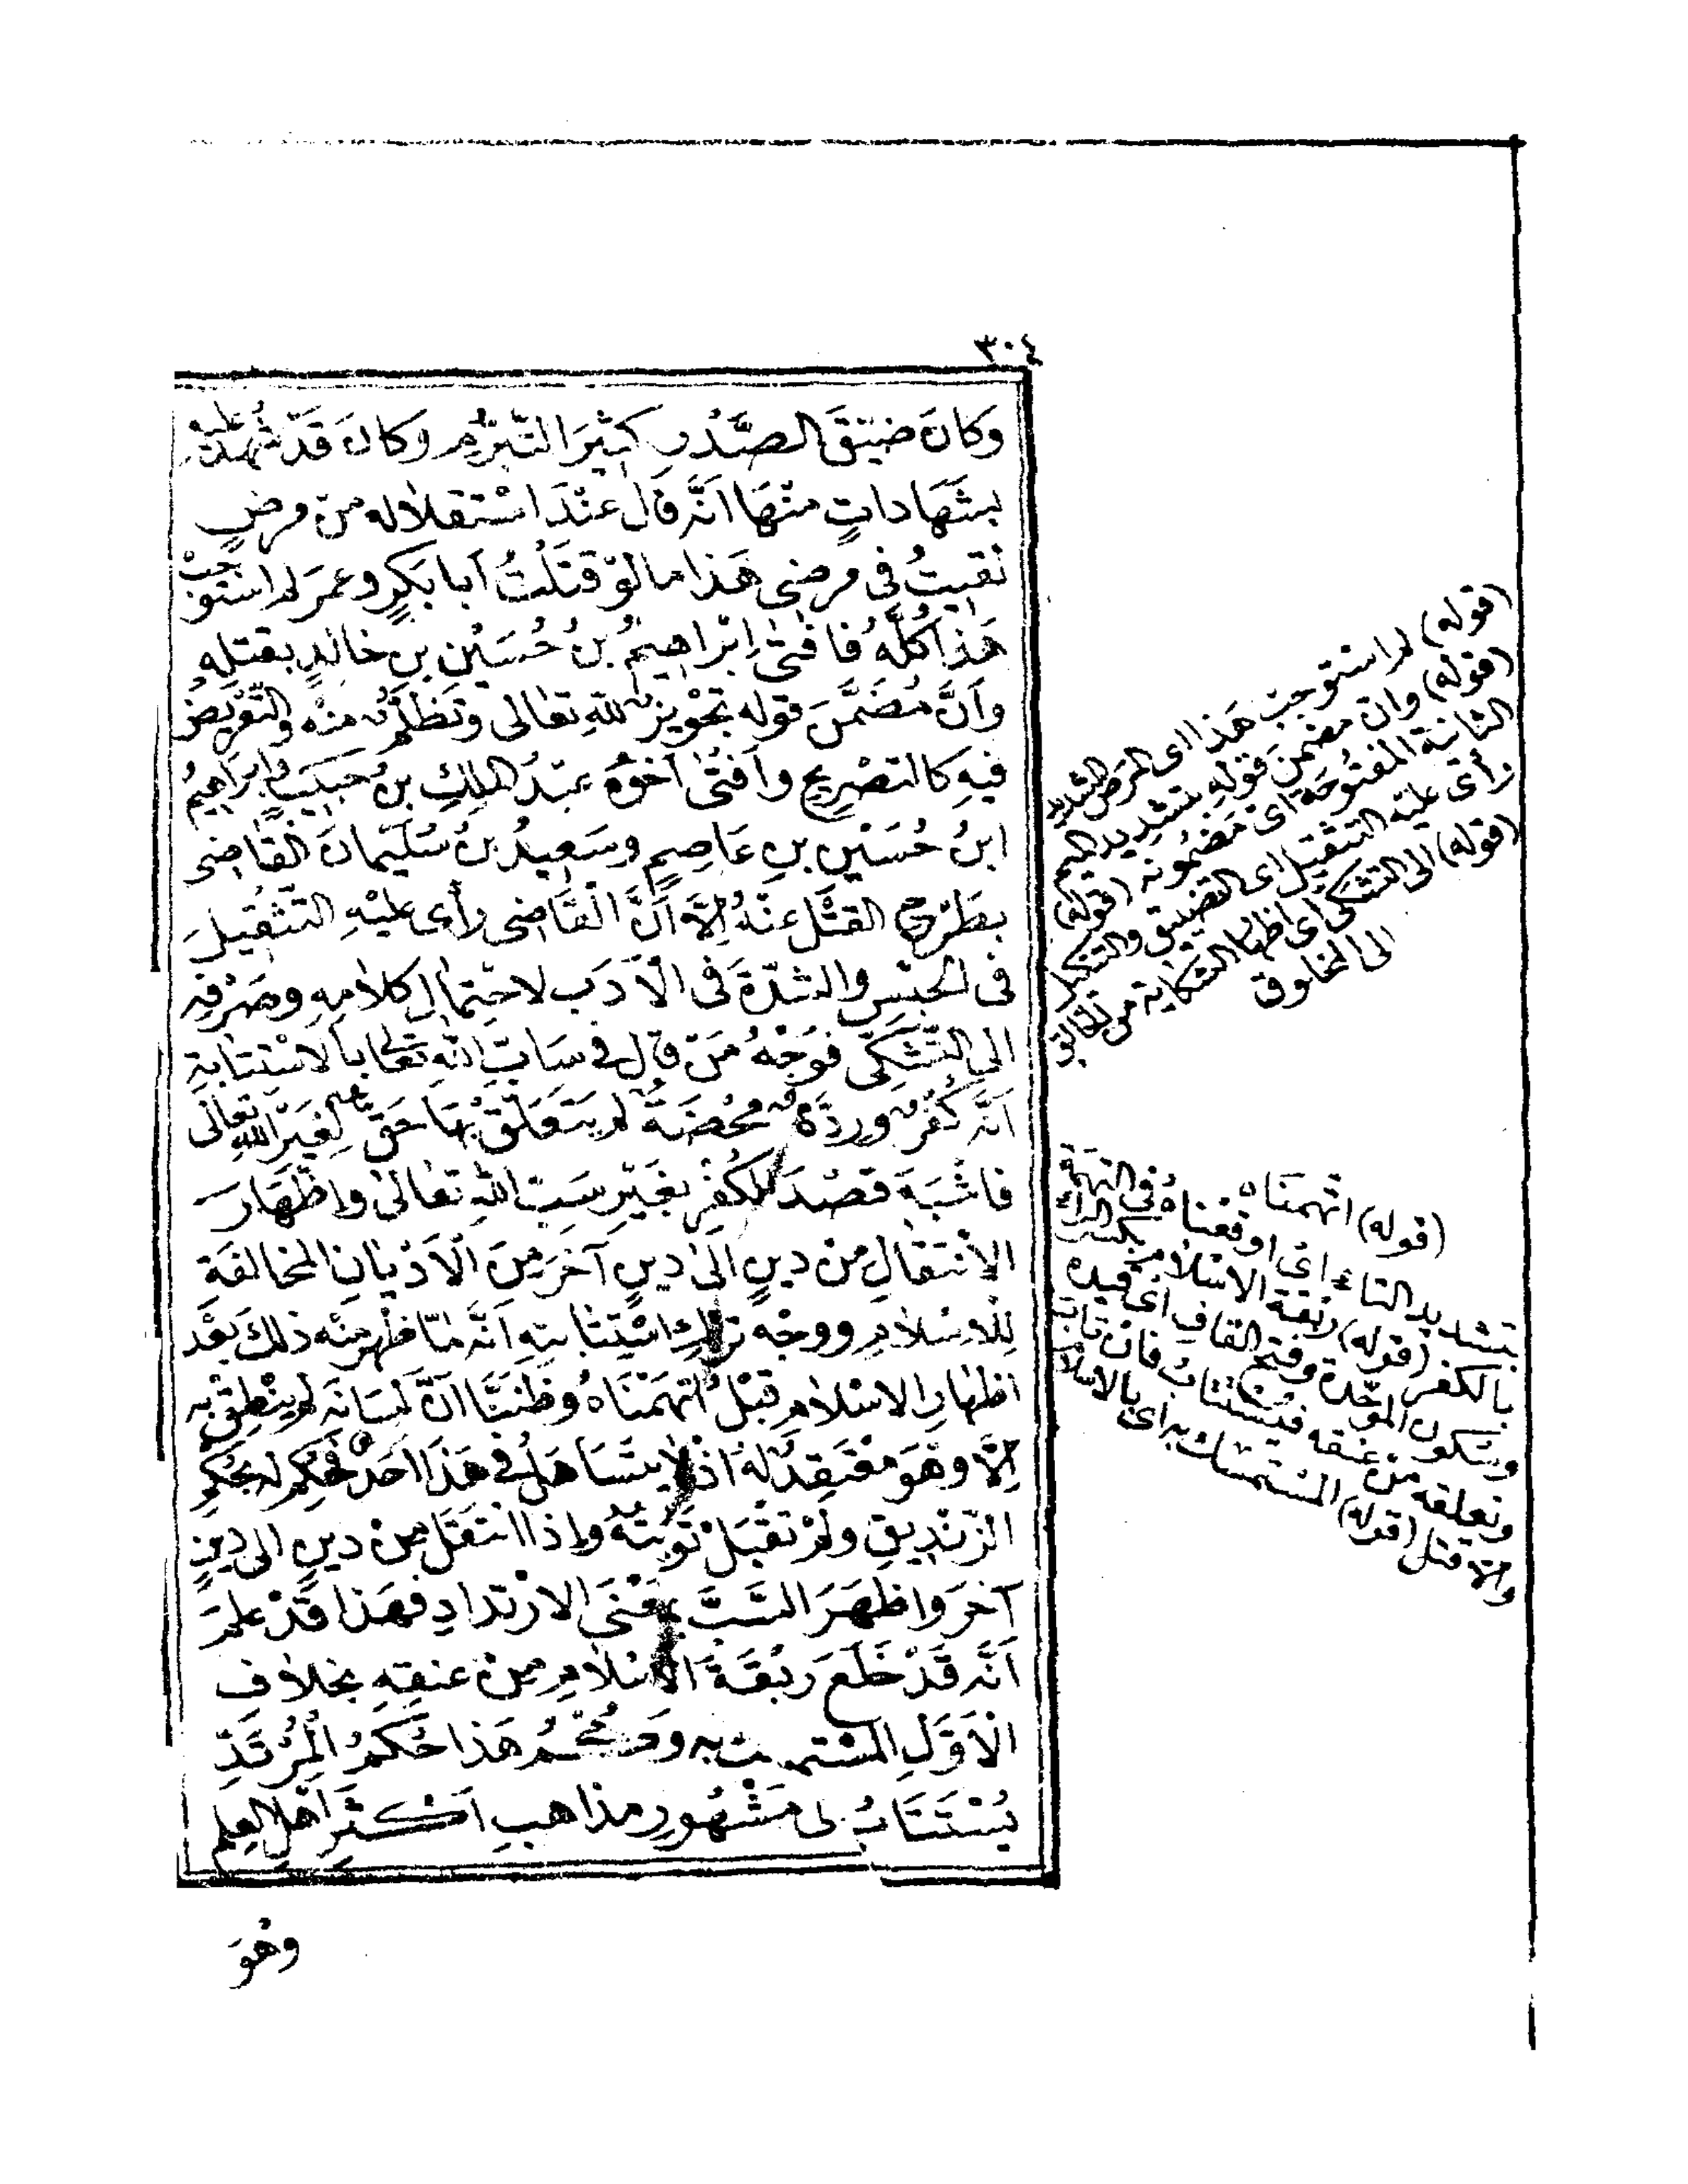 ٣٠٤
وَكَانَ ضَيِّقَ الصَّدْرِ كَثِيرَ التَّبَرُّمِ وَكَانَ قَدْ شُهِدَ عَلَيْهِ
بِشَهَادَاتٍ مِنْهَا اَنَّهُ قَالَ عِنْدَ اسْتِقْلَالِهِ مِنْ مَرَضٍ
لَقِيتُ فِى مَرَضِى هَذَا مَا لَوْ قَتَلْتُ اَبَا بَكْرٍ وَعُمَرَ لَمْ اَسْتَوْجِبْ
هَذَا كُلَّهُ فَافْتَى اِبْرَاهِيمُ بْنُ حُسَيْنِ بْنِ خَالِدٍ بِقَتْلِهِ
وَاَنَّ مُضَمَّنَ قَوْلِهِ تَجْوِيرٌ لِلَّهِ تَعَالَى وَتَظَلُّمٌ مِنْهُ وَالتَّعْرِيضُ
فِيهِ كَالتَّصْرِيحِ وَاَفْتَى اَخُوهُ عَبْدُ الْمَلِكِ بْنُ حَبِيبٍ وَاِبْرَاهِيمُ
ابْنُ حُسَيْنِ بْنِ عَاصِمٍ وَسَعِيدُ بْنُ سُلَيْمَانَ الْقَاضِى
بِطَرْحِ الْقَتْلِ عَنْهُ اِلَّا اَنَّ الْقَاضِى رَأَى عَلَيْهِ التَّثْقِيلَ
فِى الْحَبْسِ وَالشِّدَّةَ فِى الْاَدَبِ لِاحْتِمَالِ كَلَامِهِ وَصَرْفِهِ
اِلَى التَّشَكِّى فَوَجْهُ مَنْ قَالَ فِى سَابِّ اللهِ تَعَالَى بِالْاسْتِتَابَةِ
اَنَّهُ كُفْرٌ وَرِدَّةٌ مَحْضَةٌ لَمْ يَتَعَلَّقْ بِهَا حَقٌّ لِغَيْرِ اللهِ تَعَالَى
فَاَشْبَهَ قَصْدَ الْكُفْرِ بِغَيْرِ سَبِّ اللهِ تَعَالَى وَاِظْهَارَ
الْاِنْتِقَالِ مِنْ دِينٍ اِلَى دِينٍ آخَرَ مِنَ الْاَدْيَانِ الْمُخَالِفَةِ
لِلْاِسْلَامِ وَوَجْهُ تَرْكِ اسْتِتَابَتِهِ اَنَّهُ لَمَّا ظَهَرَ مِنْهُ ذَلِكَ بَعْدَ
اِظْهَارِ الْاِسْلَامِ قَبْلُ اتَّهَمْنَاهُ وَظَنَنَّا اَنَّ لِسَانَهُ لَمْ يَنْطِقْ بِهِ
اِلَّا وَهُوَ مُعْتَقِدٌ لَهُ اِذْ لَا يَتَسَاهَلُ فِى هَذَا اَحَدٌ فَحُكِمَ لَهُ بِحُكْمِ
الزِّنْدِيقِ وَلَمْ تُقْبَلْ تَوْبَتُهُ وَاِذَا انْتَقَلَ مِنْ دِينٍ اِلَى دِينٍ
آخَرَ وَاظْهَرَ السَّبَّ بِمَعْنَى الْاِرْتِدَادِ فَهَذَا قَدْ عُلِمَ
اَنَّهُ قَدْ خَلَعَ رِبْقَةَ الْاِسْلَامِ مِنْ عُنُقِهِ بِخِلَافِ
الْاَوَّلِ الْمُسْتَمْسِكِ بِهِ وَحُكْمُ هَذَا حُكْمُ الْمُرْتَدِّ
يُسْتَتَابُ عَلَى مَشْهُورِ مَذَاهِبِ اَكْثَرِ اَهْلِ الْعِلْمِ
وَهُوَ
(قوله) لم استوجب هذا اى المرض الشديد
(قوله) وان مضمن قوله بتشديد الميم
الثانية المفتوحة اى مضمونه (قوله)
رأى عليه التثقيل اى التضييق والتنكيل
(قوله) الى التشكى اى اظهار الشكاية من الخالق
الى المخلوق
(قوله) اتهمناه
بتشديد التاء اى اوقعناه فى التهمة
بالكفر (قوله) ربقة الاسلام بكسر الراء
وسكون الموحدة وفتح القاف اى قيده
وتعلقه من عنقه فيستتاب فان تاب
والا قتل (قوله) المستمسك به اى بالاسلام